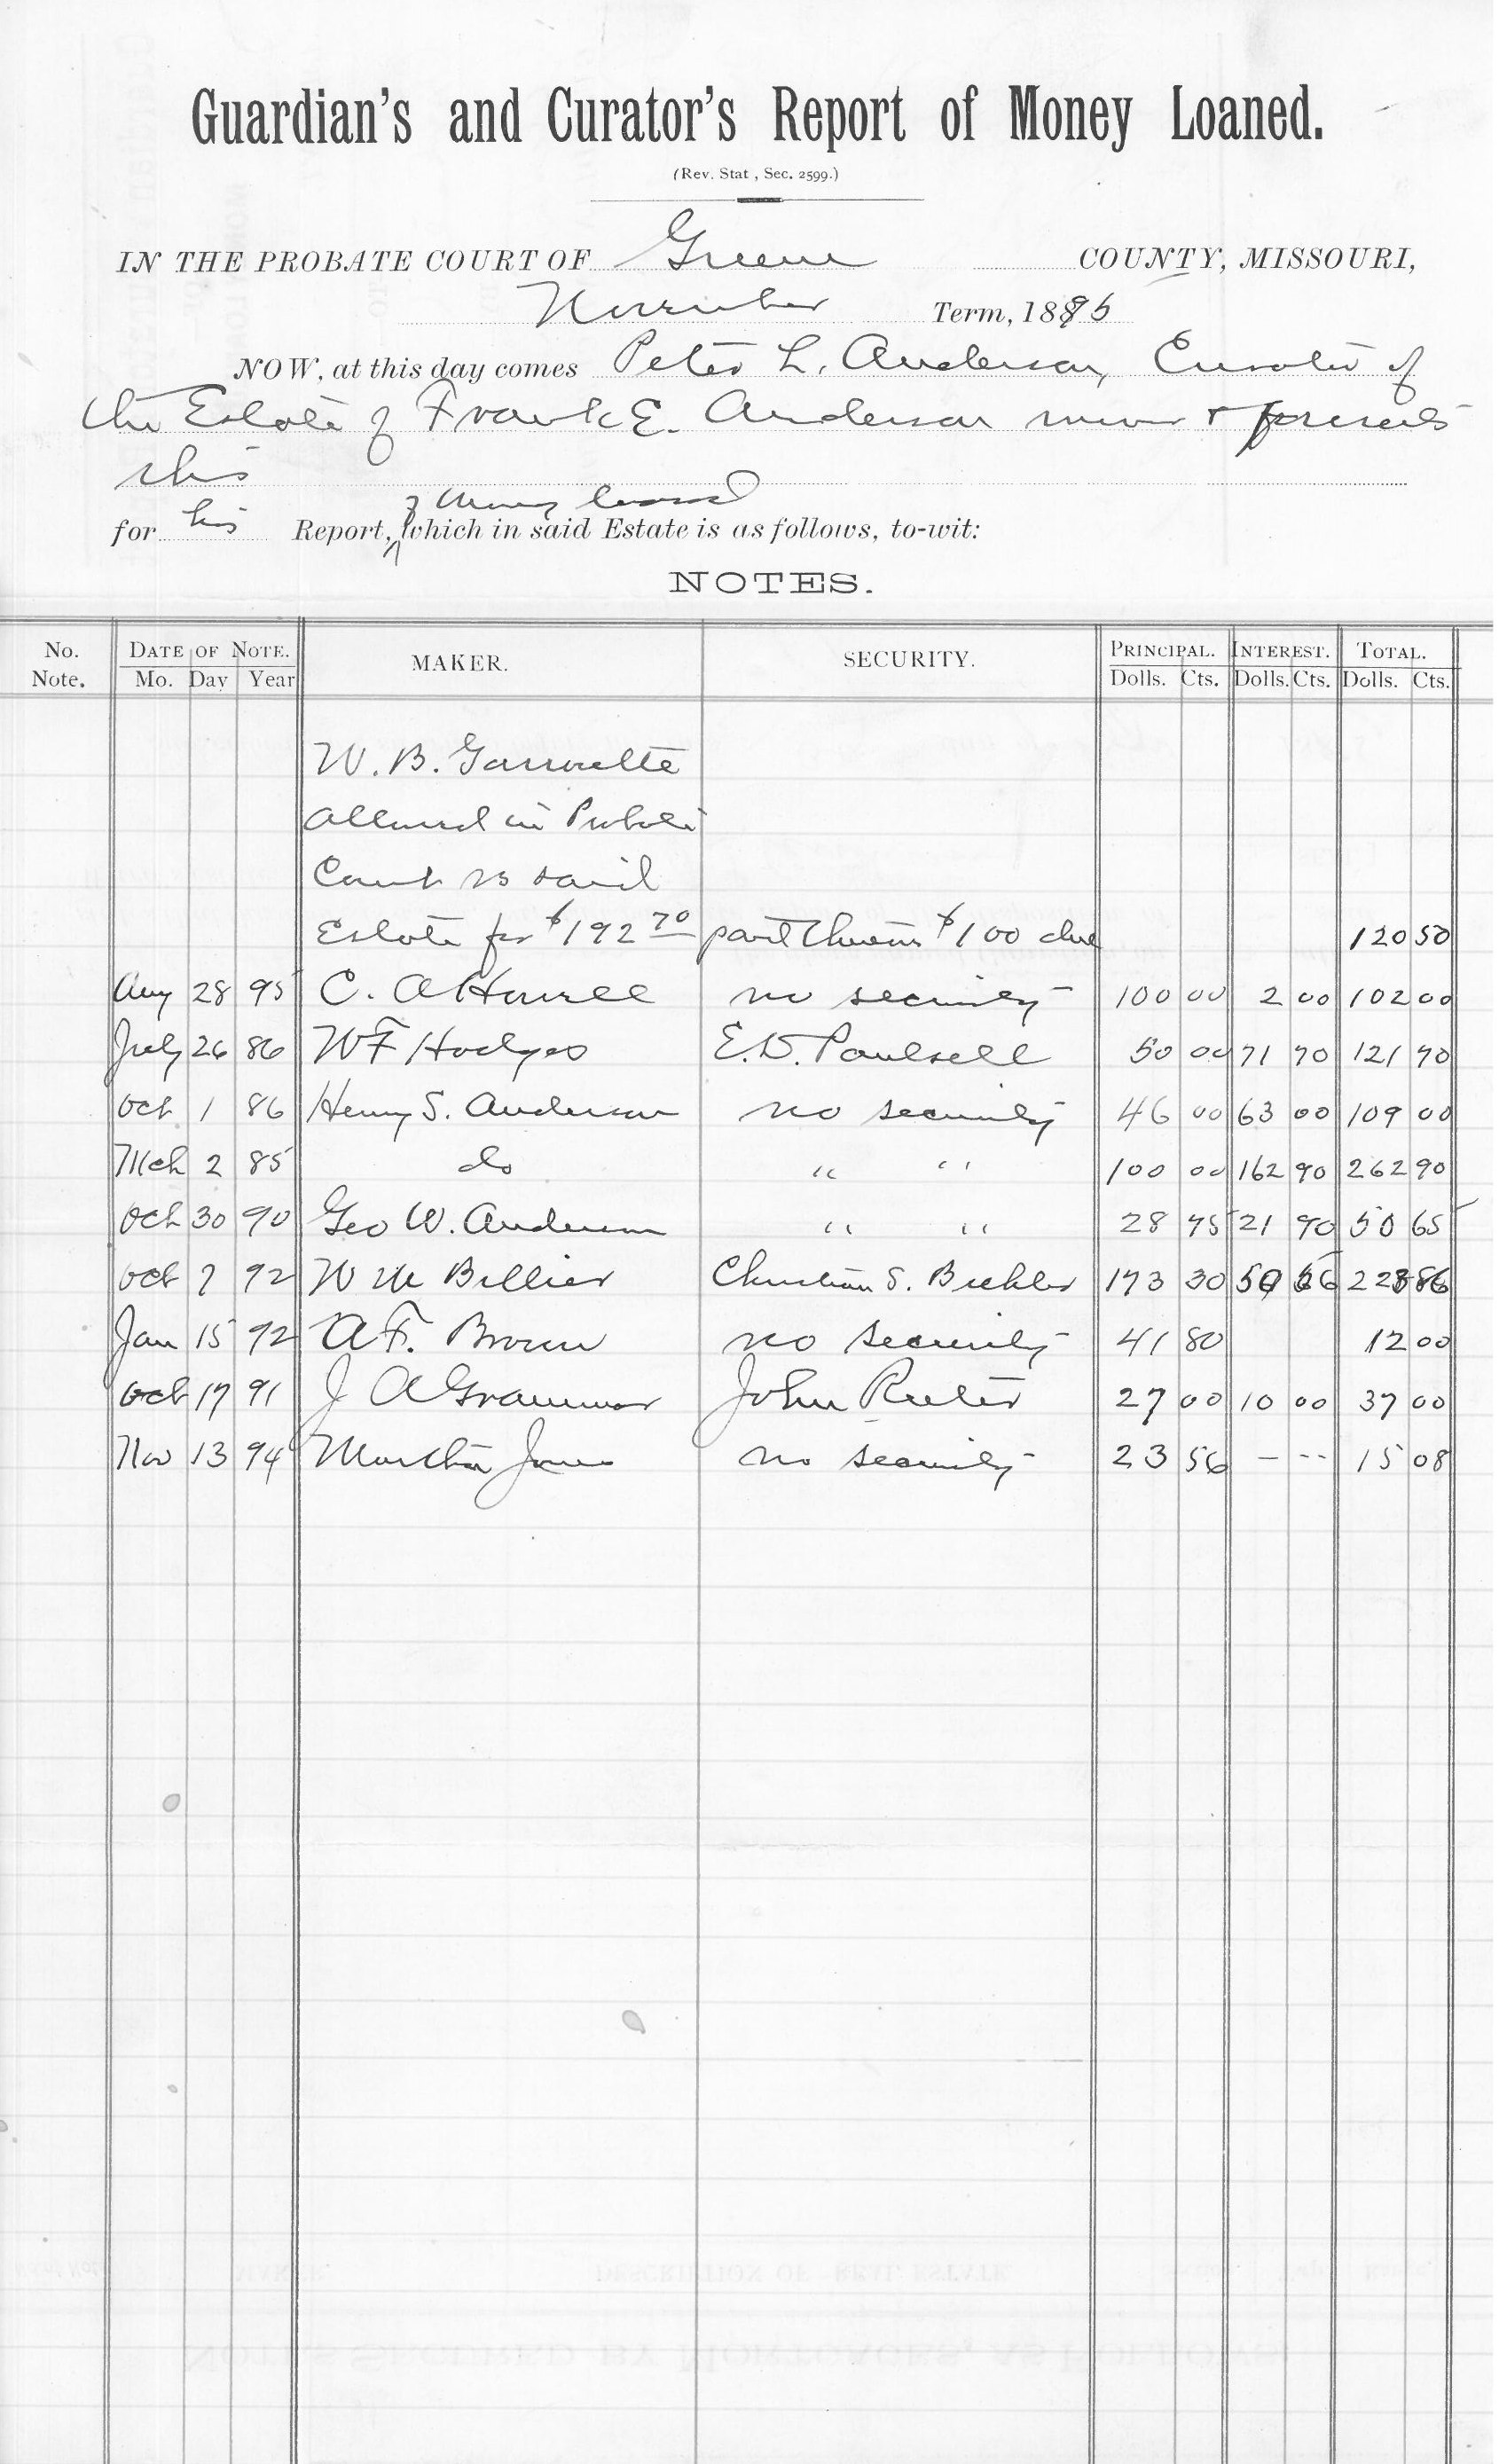 Guardian's and Curator's Report of Money Loaned.
(Rev. Stat , Sec. 2599.)
IN THE PROBATE COURT OF Greene COUNTY, MISSOURI,
November Term, 1895
NOW, at this day comes Peter L. Anderson, Curator of
the Estate of Frank E. Anderson minor & presents
this
of money loaned
for his Report, which in said Estate is as follows, to-wit:
NOTES.
No. Note. DATE OF NOTE. Mo. Day Year MAKER. SECURITY. PRINCIPAL. Dolls. Cts. INTEREST. Dolls. Cts. TOTAL. Dolls. Cts.
W. B. Garroutte
allowed in Probate
Court vs said
Estate for $192 70 part thereon $100 due 120 50
Aug 28 95 C. A Howell no security 100 00 2 00 102 00
July 26 86 W F Hodges E. D. Paulsell 50 00 71 70 121 70
Oct 1 86 Henry S. Anderson no security 46 00 63 00 109 00
Mch 2 85 do " " 100 00 162 90 262 90
Oct 30 90 Geo W. Anderson " " 28 75 21 90 50 65
Oct 7 92 W M Billier Christian S. Biehler 173 30 50 56 223 86
Jan 15 92 A F. Brown no security 41 80 12 00
Oct 17 91 J A Grammar John Reeter 27 00 10 00 37 00
Nov 13 94 Martha Jones no security 23 56 — -- 15 08